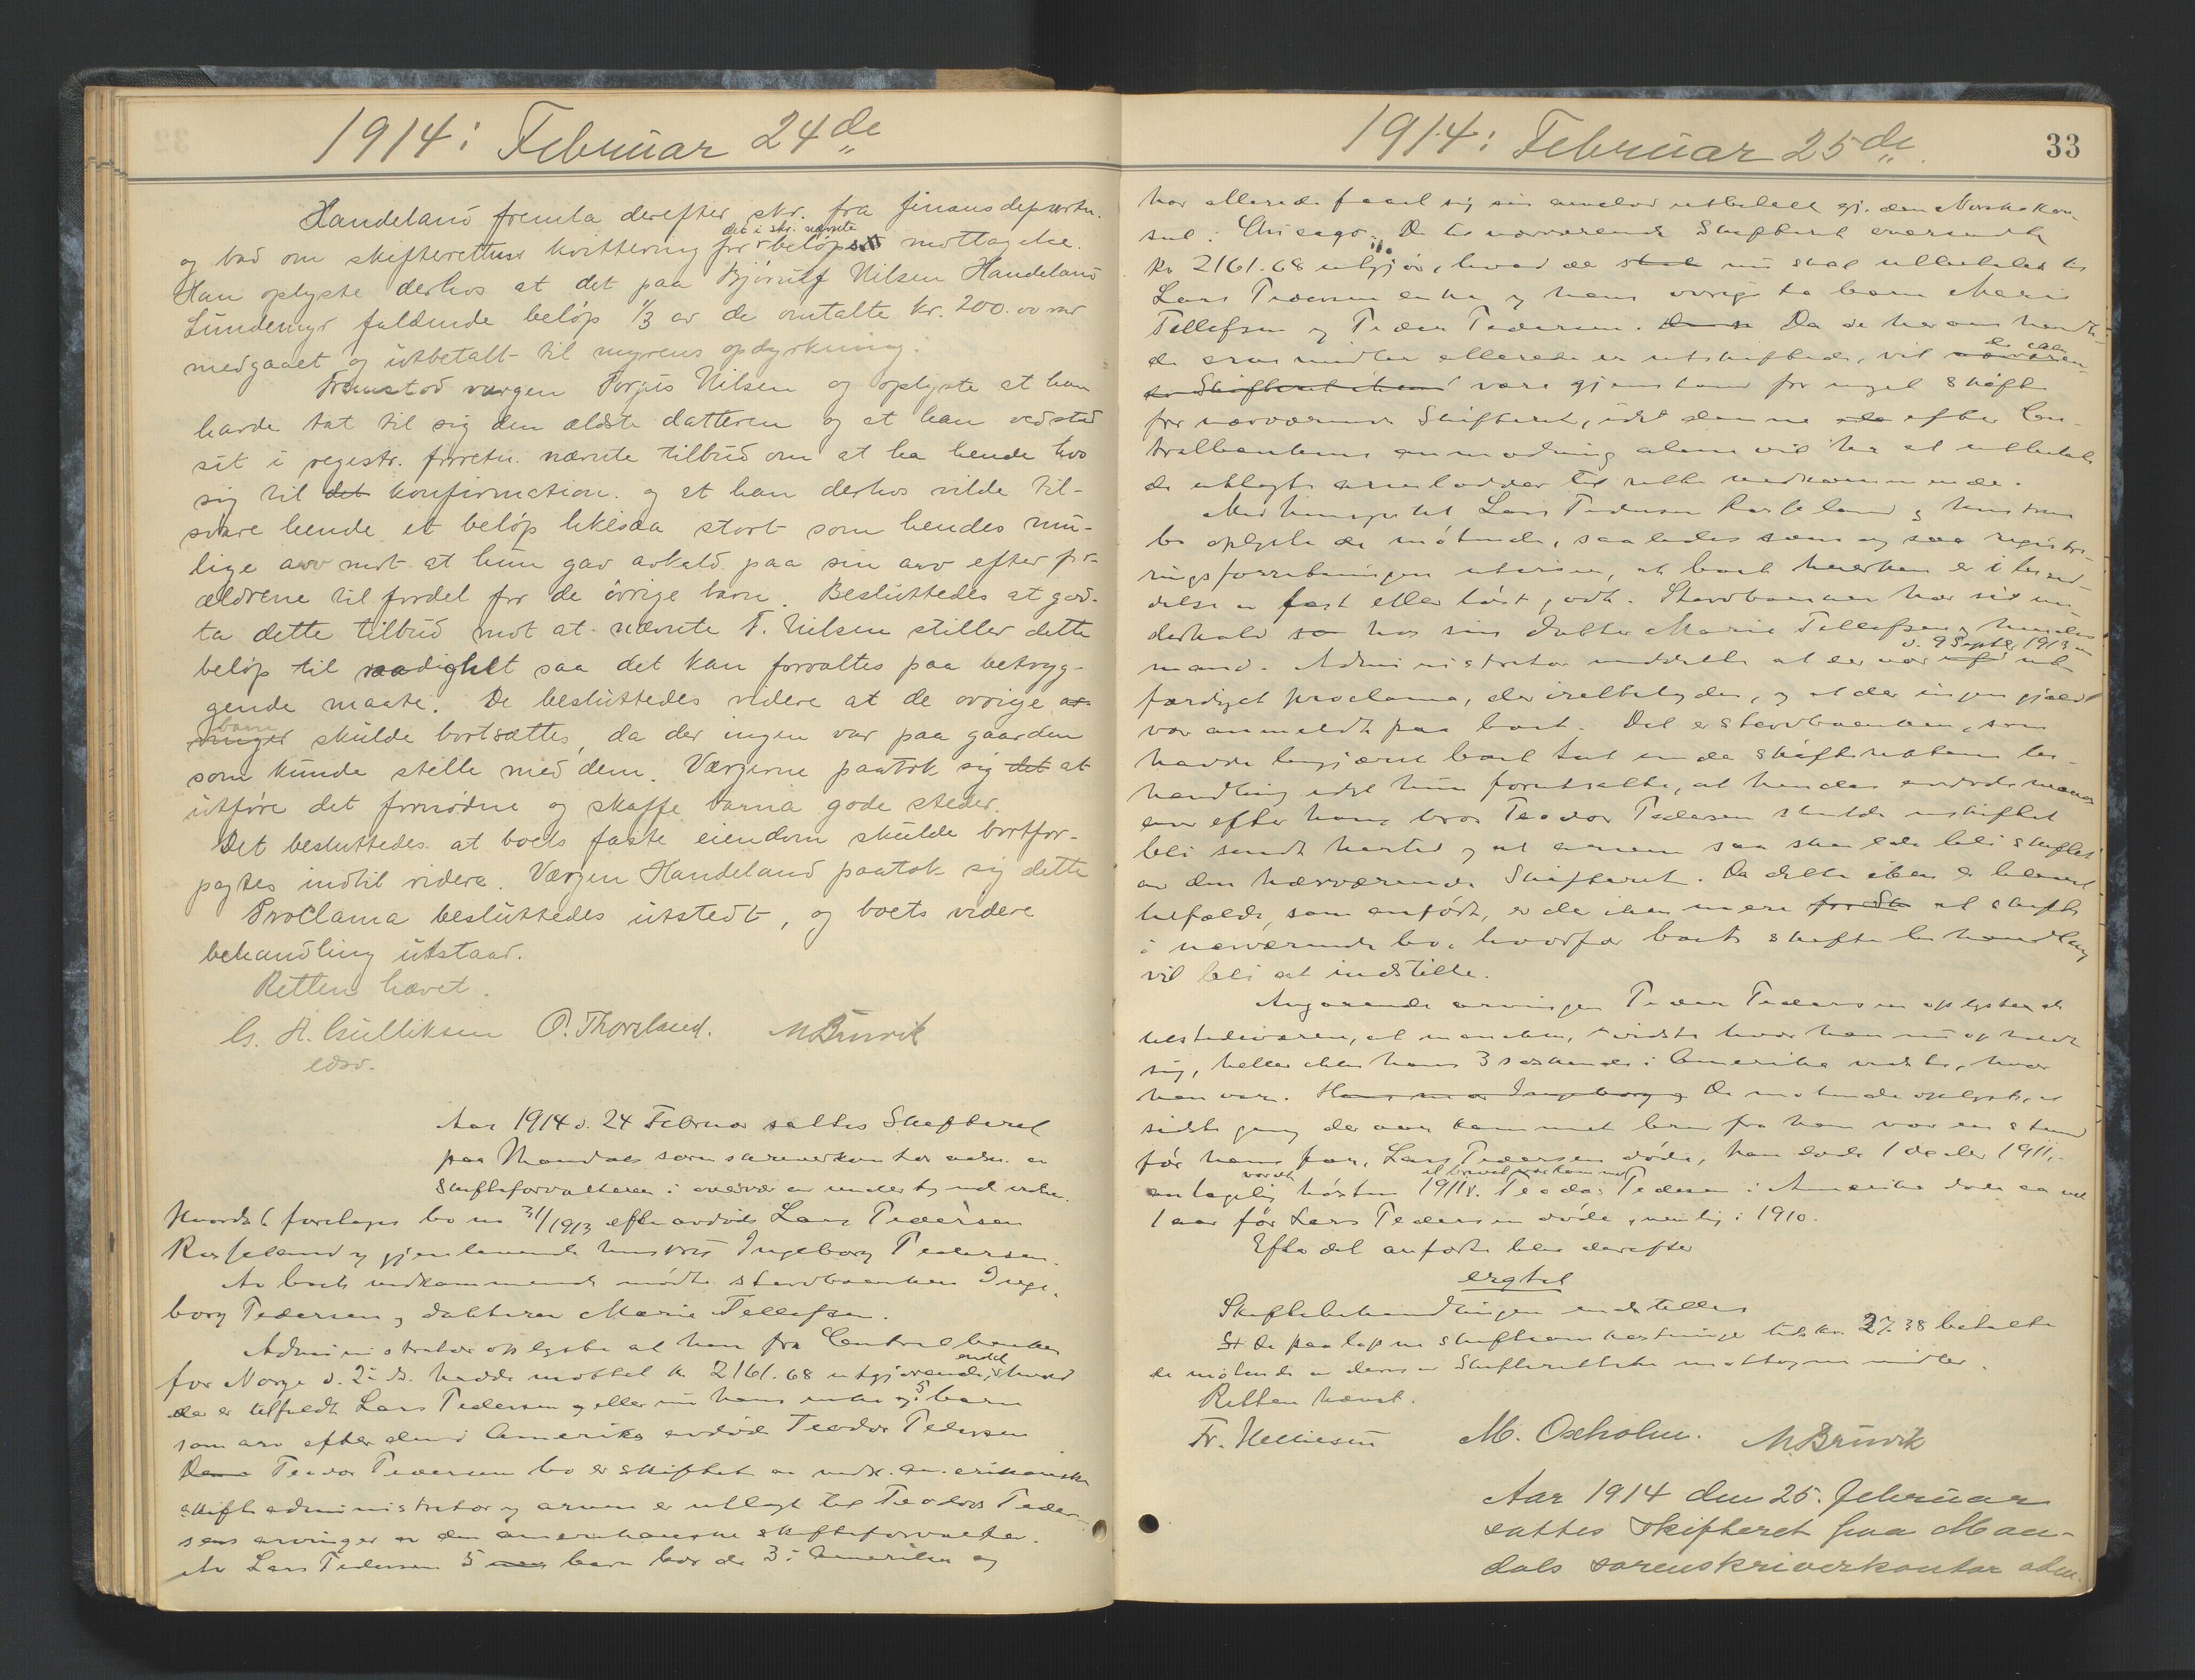 1914: Februar 24de
Handeland fremla derefter skr. fra finansdepartn.
det i skr. nævnte
og bad om skifterettens kvittering for beløpets mottagelse.
Han oplyste derhos at det paa Bjørulf Nilsen Handeland
Lundemyr faldende beløp 1/3 av de omtalte kr. 200.00 var
medgaaet og utbetalt til myrens opdyrkning.
Fremstod vergen Torjus Nilsen og oplyste at han
havde tat til sig den ældste datteren og at han vedstod
sit i registr. forretn. nævnte tilbud om at ha hende hos
sig til det konfirmation. og at han derhos vilde til-
svare hende et beløp likesaa stort som hendes mu-
lige arv mot at hun gav avkald paa sin arv efter for-
ældrene til fordel for de øvrige barn. Besluttedes at god-
ta dette tilbud mot at nævnte T. Nilsen stiller dette
beløp til raadighet saa det kan forvaltes paa betryg-
gende maate. De besluttedes videre at de øvrige
barn
skulde bortsættes, da der ingen var paa gaarden
som kunde stelle med dem. Værgerne paatok sig det at
utføre det fornødne og skaffe barna gode steder.
Det besluttedes at boets faste eiendom skulde bortfor-
pagtes indtil videre. Værgen Handeland paatok sig dette
Proclama besluttedes utstedt, og boets videre
behandling utstaar.
Retten hævet.
G. A. Gulliksen O. Thorsland. M Bruvik
edsv.
Aar 1914 d. 24 Februar sattes Skifteret
paa Mandals sorenskriverkontor adm. av
Skifteforvalteren i overvær av undertegnede vidner.
Hvorda foretages bo no 31/1913 efter avdøde Lars Pedersen
Rosseland og gjenlevende hustru Ingeborg Pedersen.
Av boets vedkommende mødte stervboenken Inge-
borg Pedersen og datteren Marie Tellefsen.
Administrator oplyste at han fra Centralbanken
endel
for Norge d. 2 ds. hadde mottat kr 2161.68 utgjørende, hvad
5
der er tilfaldt Lars Pedersen og eller nu hans enke og barn
som arv efter den i Amerika avdøde Teodor Pedersen
Teodor Pedersens bo er skiftet av vedk. amerikanske
skifteadministrator og arven er utlagt til Teodors Peder-
sens arvinger av den amerikanske skifteforvalter.
Av Lars Pedersens 5 barn bor de 3 i Amerika og
1914: Februar 25de
33
har allerede faaet sig sin arvelod utbetalt gj. den Norske kon-
sul i Chicago. De til nærværende Skifteret oversendte
kr 2161.68 utgjør, hvad de skal nu skal utbetales til
Lars Pedersens enke og hans øvrige to barn Marie
Tellefsen og Peder Pedersen. Da de her om hand-
de arvemidler allerede er utskiftede, vil
være gjenstand for noget skifte
for nærværende Skifteret, idet denne efter Cen-
tralbankens anmodning alene vil ha at utbetale
de utlagte arvelodder til rette vedkommende.
Med hensyn til Lars Pedersen Rosseland og hustrus
bo oplyste de møtende, saaledes som og saa registre-
ringsforretningen utviser, at boet hverken er i besid-
delse av fast eller løst gods. Stervboenken har sit un-
derhold hos sin datter Marie Tellefsen og hendes
d. 9 Septbr 1913
mand. Administrator meddelte at der var ut-
færdiget proclama, der er utløpet, og at der ingen gjæld
var anmeldt paa boet. Det er stervboenken, som
havde begjæret boet tat under skifterettens be-
handling idet hun forutsatte, at hendes avdøde mands
arv efter hans bror Teodor Pedersen skulde uskiftet
bli sendt herted og at arven saa skulde bli skiftet
av den herværende Skifteret. Da dette ikke er blevet
tilfælde, som anført, er der ikke mere at skifte
i nærværende bo, hvorfor boets skiftebehandling
vil bli at indstille.
Angaaende arvingen Peder Pedersen oplystes de
tilstedeværen, at man ikke vidste hvor han nu opholdt
sig, heller ikke hans 3 søskende i Amerika vidste, hvor
han var. De møtende oplyste, at
sidste gang der var kommet brev fra ham var en stund
før hans far, Lars Pedersen døde, han døde 1 decbr 1911,
antagelig høsten 1911. Teodor Pedersen i Amerika døde ca
1 aar før Lars Pedersen døde, nemlig i 1910.
Efter det anførte blev derefter
eragtet
Skiftebehandlingen indstilles
De paaløpne skifteomkostninger tils. kr. 27.38 betaltes
de møtende av deres av Skifteretten mottagne midler.
Retten hævet.
Fr. Helliesen M. Oxholm. M Bruvik
Aar 1914 den 25. februar
sattes skifteret paa Man-
dals sorenskriverkontor adm.